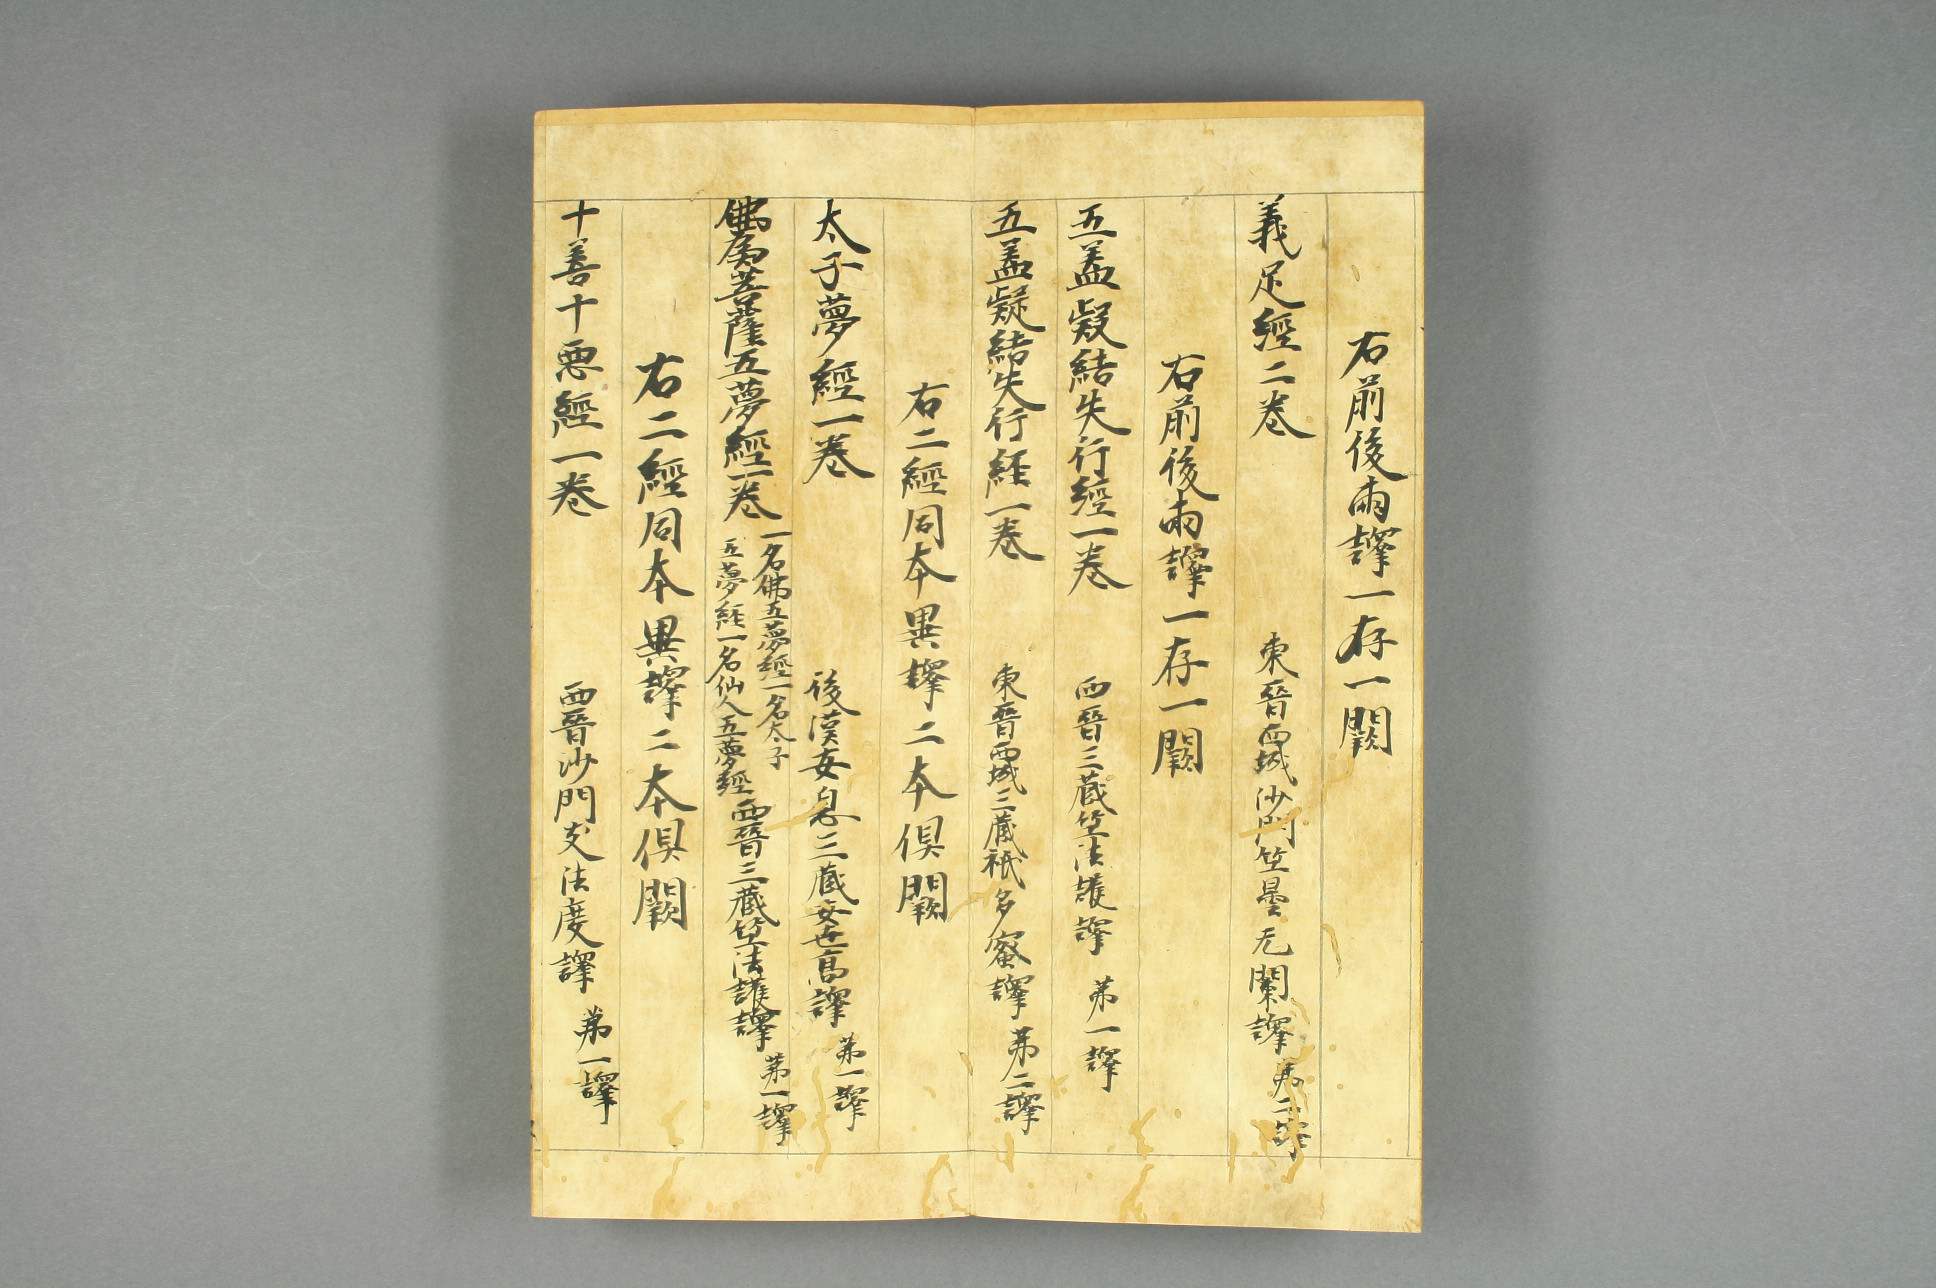 右前後兩譯一存一闕
義足經二卷 東晉西域沙門竺曇无蘭譯 第二譯
右前後兩譯一存一闕
五蓋疑結失行經一卷 西晉三藏竺法護譯 第一譯
五蓋疑結失行経一卷 東晉西域三藏祇多蜜譯 第二譯
右二經同本異譯二本俱闕
太子夢經一卷 後漢安息三藏安世高譯 第一譯
佛為菩薩五夢經一卷 一名佛五夢經一名太子
五夢経一名仙人五夢經 西晉三藏竺法護譯 第一譯
右二經同本異譯二本俱闕
十善十惡經一卷 西晉沙門支法度譯 第一譯